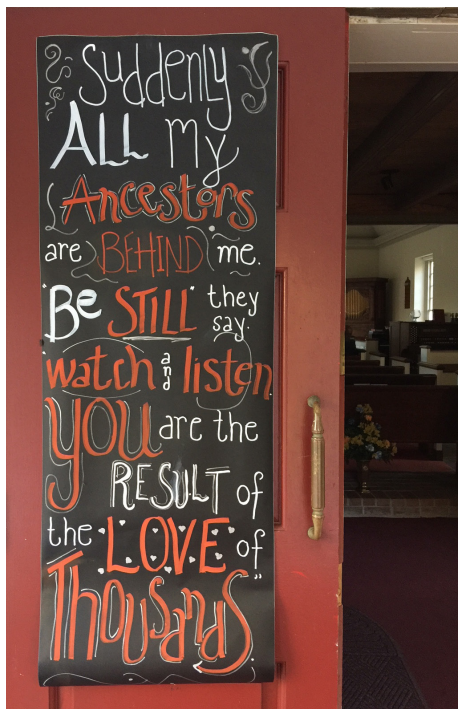 Suddenly
ALL my
Ancestors
are BEHIND me.
"Be STILL" they
say.
watch and listen
you are the
RESULT of
the LOVE of
Thousands"